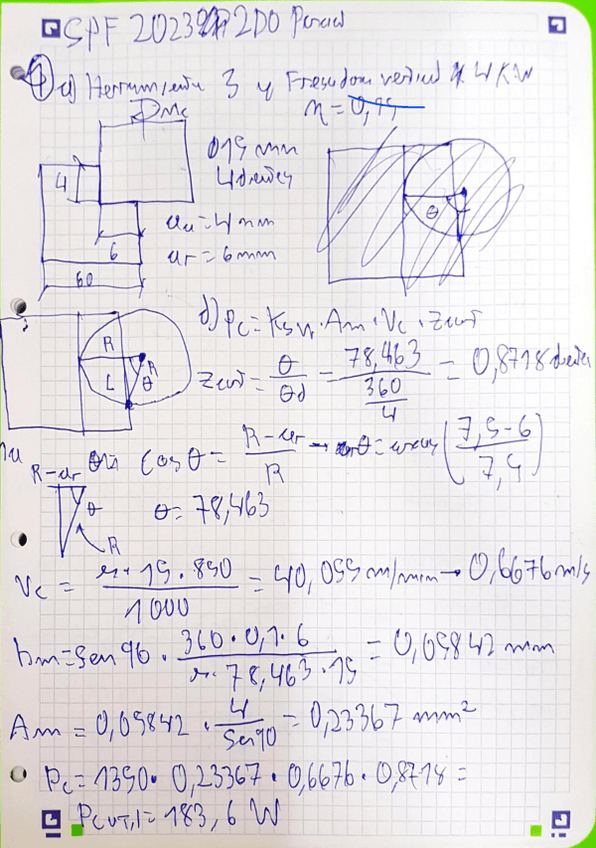 SPF 2023 2DO Parcial
1) a) Herramienta 3 y Fresadora vertical 4 KW
η = 0,95
Mc
Ø15 mm
4 dientes
4
aa = 4 mm
6
ar = 6 mm
60
θ
R
R
L
θ
b) Pc = Ksm · Am · Vc · Zcort
Zcort = θ / θd = 78,463 / (360 / 4) = 0,8718 dientes
R - ar
cos θ = (R - ar) / R → θ = arcos (7,5 - 6 / 7,5)
θ
θ = 78,463
R
Vc = π · 15 · 850 / 1000 = 40,055 m/min → 0,6676 m/s
hm = Sen 90 · 360 · 0,1 · 6 / π · 78,463 · 15 = 0,05842 mm
Am = 0,05842 · 4 / Sen 90 = 0,23367 mm²
Pc = 1350 · 0,23367 · 0,6676 · 0,8718 =
Pcut,1 = 183,6 W